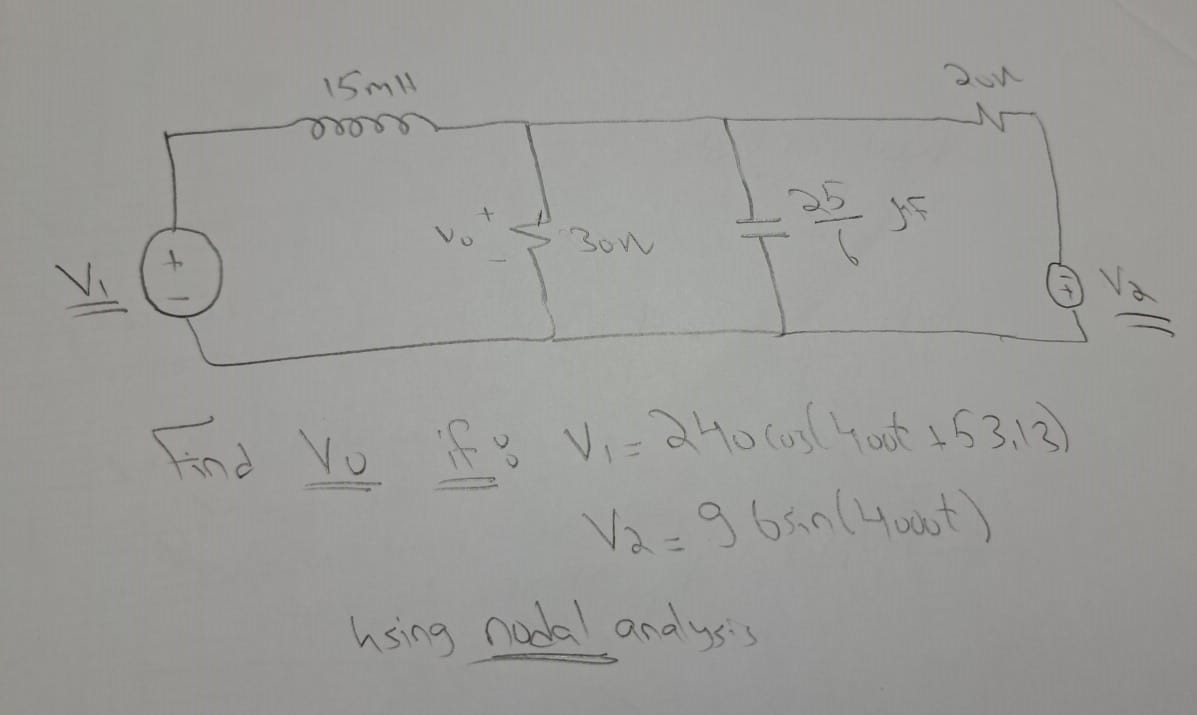 15mH
20Ω
V₀
+
-
30Ω
25/6 μF
V₁
+
-
V₂
-
+
Find V₀ if: V₁ = 240 cos(400t + 53.13)
V₂ = 96 sin(4000t)
using nodal analysis